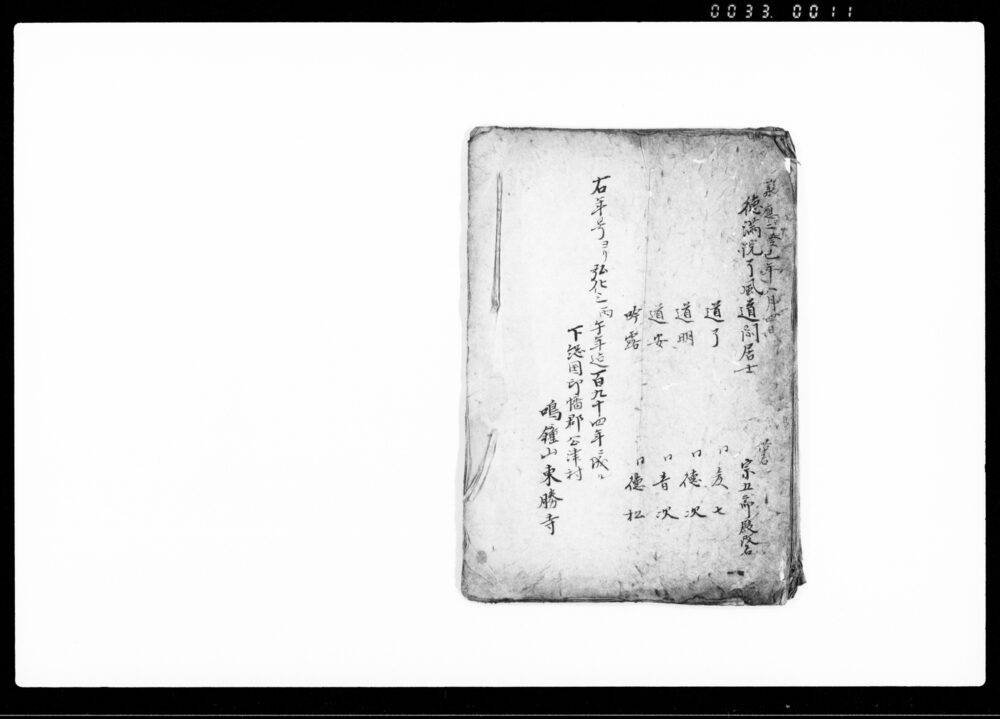 0033 0011
承應二癸巳年八月四日
徳満院了風道閑居士
俗名
宗五郎殿改名
道了
〃彦七
道明
〃徳次
道安
〃音次
吟露
〃徳松
右年号ヨリ弘化三丙午年迄百九十四年ニ成ル
下総国印幡郡公津村
鳴鐘山東勝寺